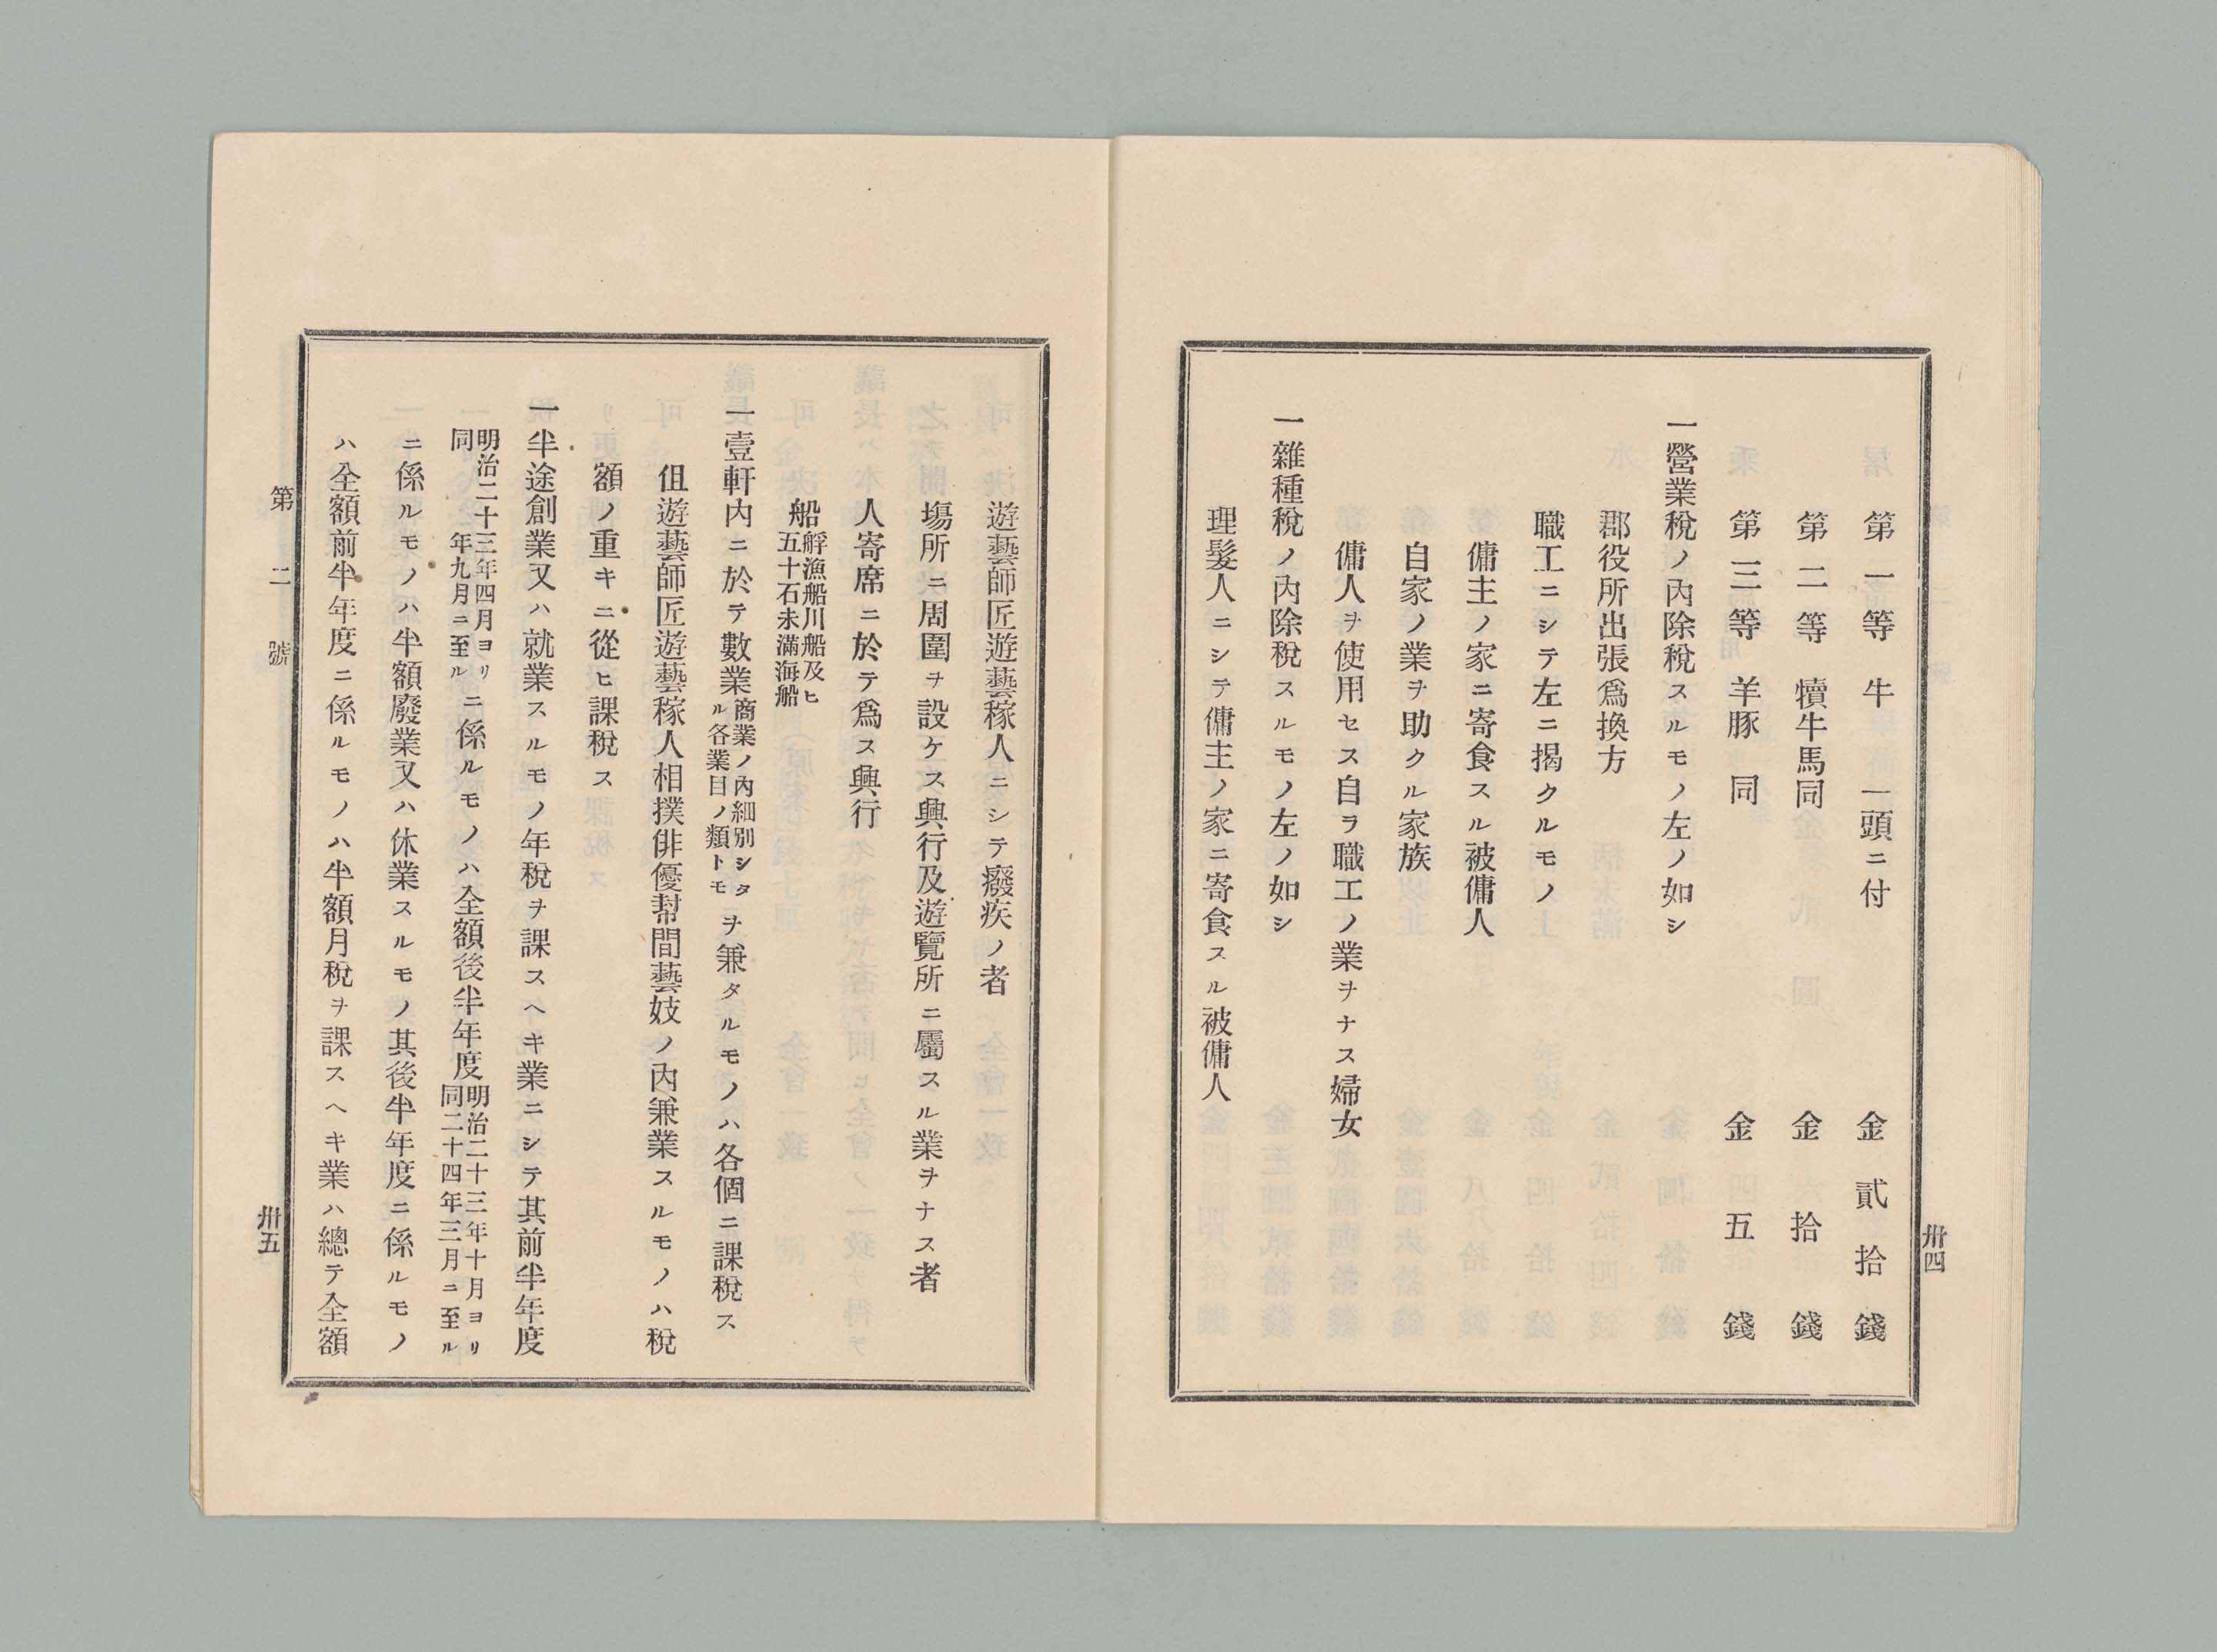 第一等　牛　一頭ニ付　金貳拾錢
第二等　犢牛馬同　金拾錢
第三等　羊豚　同　金五錢
一營業稅ノ內除稅スルモノ左ノ如シ
郡役所出張爲換方
職工ニシテ左ニ揭クルモノ
傭主ノ家ニ寄食スル被傭人
自家ノ業ヲ助クル家族
傭人ヲ使用セス自ラ職工ノ業ヲナス婦女
一雜種稅ノ內除稅スルモノ左ノ如シ
理髮人ニシテ傭主ノ家ニ寄食スル被傭人
卅四
遊藝師匠遊藝稼人ニシテ癈疾ノ者
塲所ニ周圍ヲ設ケス興行及遊覽所ニ屬スル業ヲナス者
人寄席ニ於テ爲ス興行
船艀漁船川船及ヒ五十石未滿海船
一壹軒內ニ於テ數業商業ノ內細別シタル各業目ノ類トモヲ兼タルモノハ各個ニ課稅ス
伹遊藝師匠遊藝稼人相撲俳優幇間藝妓ノ內兼業スルモノハ稅
額ノ重キニ從ヒ課稅ス
一半途創業又ハ就業スルモノ年稅ヲ課スヘキ業ニシテ其前半年度
明治二十三年四月ヨリ同年九月ニ至ルニ係ルモノハ全額後半年度明治二十三年十月ヨリ同二十四年三月ニ至ル
ニ係ルモノハ半額廢業又ハ休業スルモノ其後半年度ニ係ルモノ
ハ全額前半年度ニ係ルモノハ半額月稅ヲ課スヘキ業ハ總テ全額
第二號
卅五